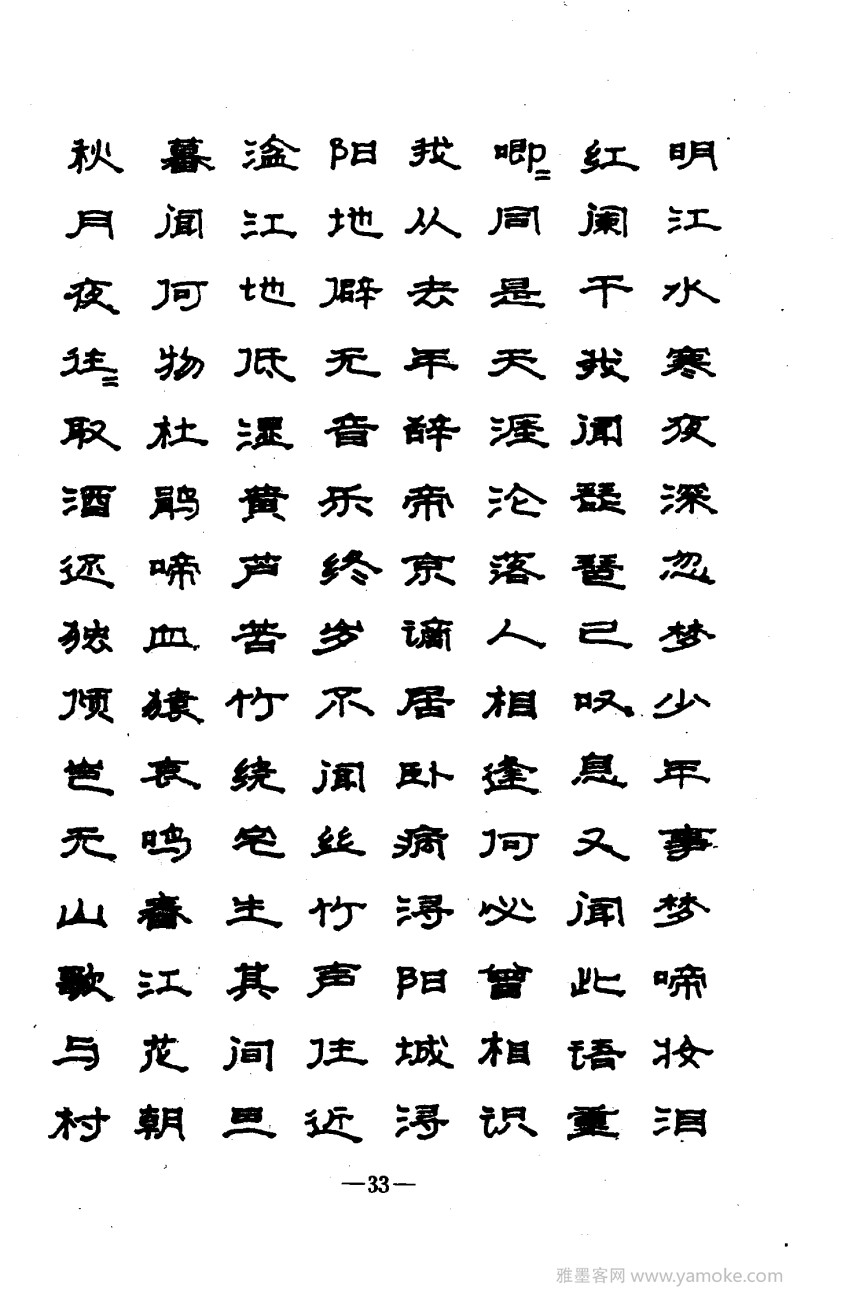 明江水寒夜深忽梦少年事梦啼妆泪
红阑干我闻琵琶已叹息又闻此语重
唧=同是天涯沦落人相逢何必曾相识
我从去年辞帝京谪居卧病浔阳城浔
阳地僻无音乐终岁不闻丝竹声住近
湓江地低湿黄芦苦竹绕宅生其间旦
暮闻何物杜鹃啼血猿哀鸣春江花朝
秋月夜往=取酒还独倾岂无山歌与村
—33—
雅墨客网 www.yamoke.com